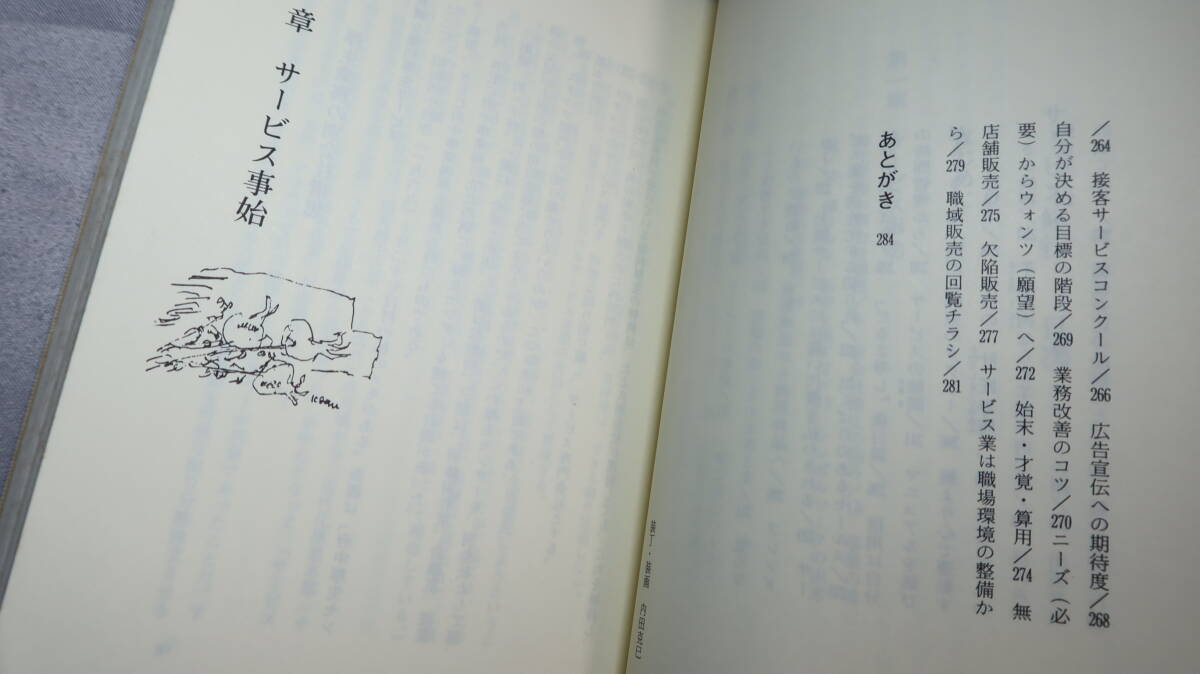 ／264　接客サービスコンクール／266　広告宣伝への期待度／268
自分が決める目標の階段／269　業務改善のコツ／270ニーズ（必
要）からウォンツ（願望）へ／272　始末・才覚・算用／274　無
店舗販売／275　欠陥販売／277　サービス業は職場環境の整備か
ら／279　職域販売の回覧チラシ／281
あとがき　284
装丁・装画　内田克巳
章　サービス事始